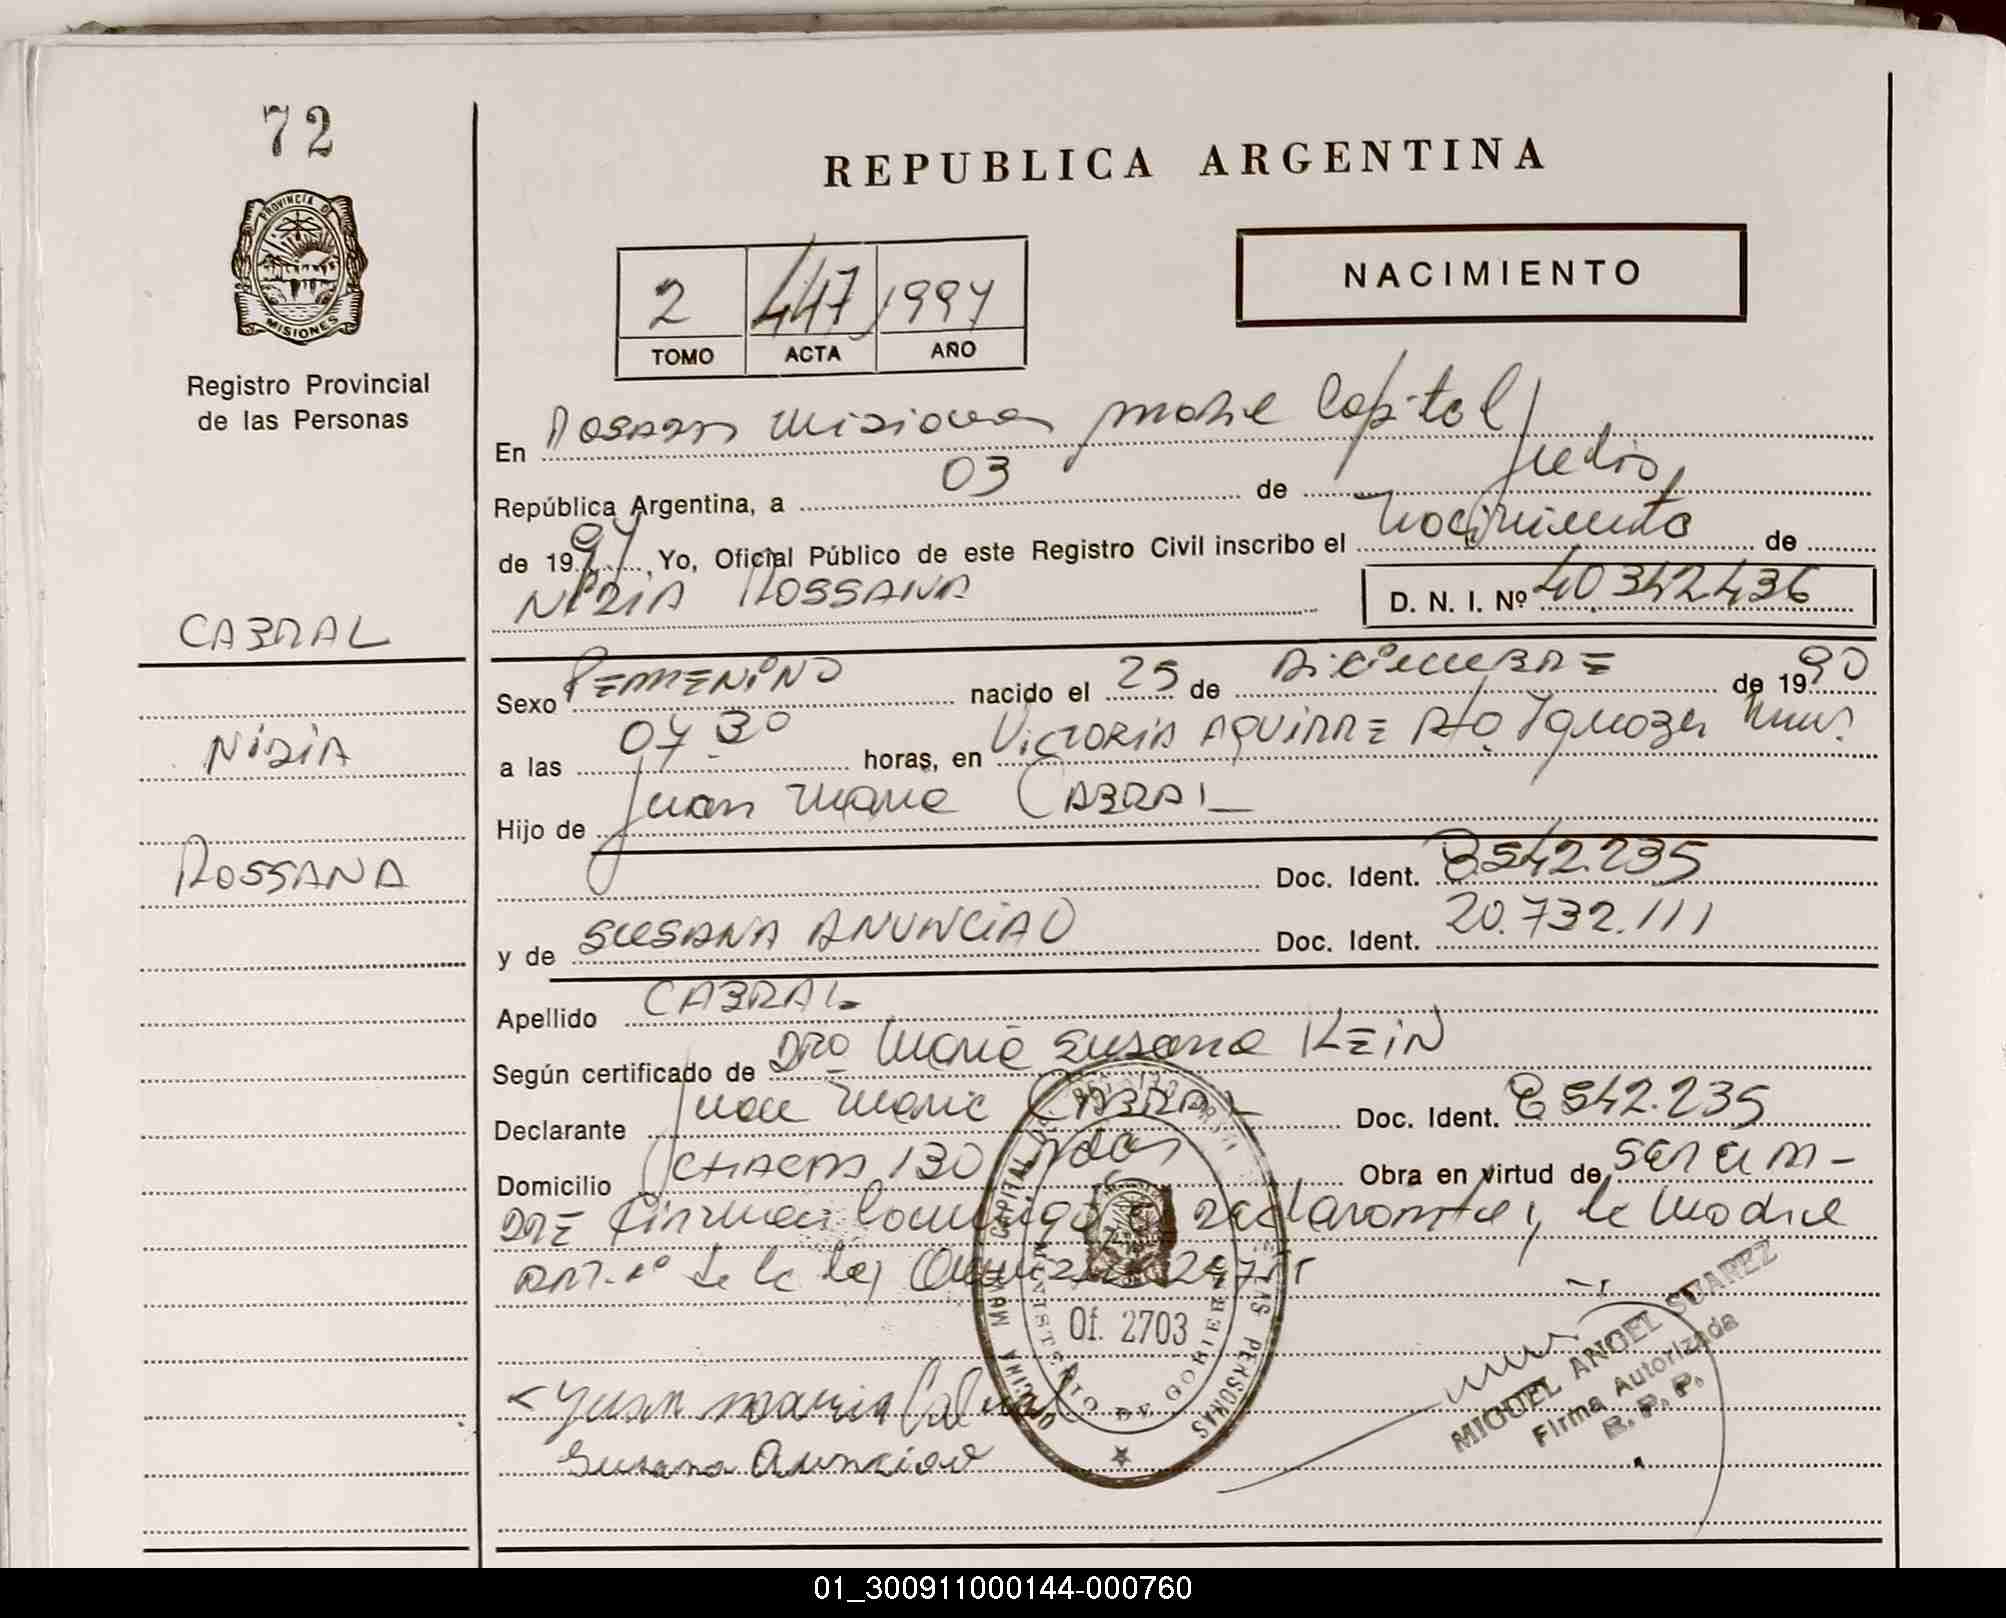 72
REPUBLICA ARGENTINA
PROVINCIA DE
MISIONES
Registro Provincial
de las Personas
NACIMIENTO
2 447 1997
TOMO ACTA AÑO
En Posadas Misiones Capital
República Argentina, a 03 de Julio
de 1997, Yo, Oficial Público de este Registro Civil inscribo el nacimiento de
NIDIA ROSSANA D. N. I. Nº 40.342.436
CABRAL
NIDIA
ROSSANA
Sexo FEMENINO nacido el 25 de DICIEMBRE de 1990
a las 07 30 horas, en VICTORIA AGUIRRE PTO. Iguazu Mnes.
Hijo de Juan Maria CABRAL
Doc. Ident. 8.542.235
y de SUSANA ANUNCIAO Doc. Ident. 20.732.111
Apellido CABRAL
Según certificado de DRA Maria Susana KEIN
Declarante Juan Maria CABRAL Doc. Ident. 8.542.235
Domicilio CHACRA 130 Pdas Obra en virtud de SER EL PA-
DRE Firman conmigo el declarante y la Madre
ART. 1º de la ley
OFICINA MAWE CAPITAL
LAS PERSONAS
MINISTERIO DE GOBIERNO
Of. 2703
MIGUEL ANGEL SUAREZ
Firma Autorizada
R. P. P.
Juan Maria Cabral
Susana Anunciao
01_300911000144-000760